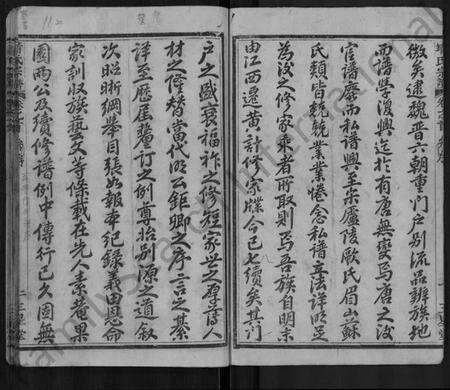 微矣逮魏晉六朝重門戶別流品辨族地
而譜學復興迄於有唐無變焉唐之後
官譜廢而私譜興至宋廬陵歐氏眉山蘇
氏類皆兢兢業業惓念私譜立法詳明足
為後之修家乘者所取則焉吾族自明宗
由江西遷黃計修家牒今已七續矣其門
戶之盛衰福祚之修短家世之厚薄人
材之隆替當代明公鉅卿之序言之綦
詳至歷屆釐訂之例尊始別源之道敘
次昭昕綱舉目張如報本紀錄義田恩命
家訓收族藝文等條載在先人素菴果
園兩公及續修譜例中傳行已久固無
FamilySearch International